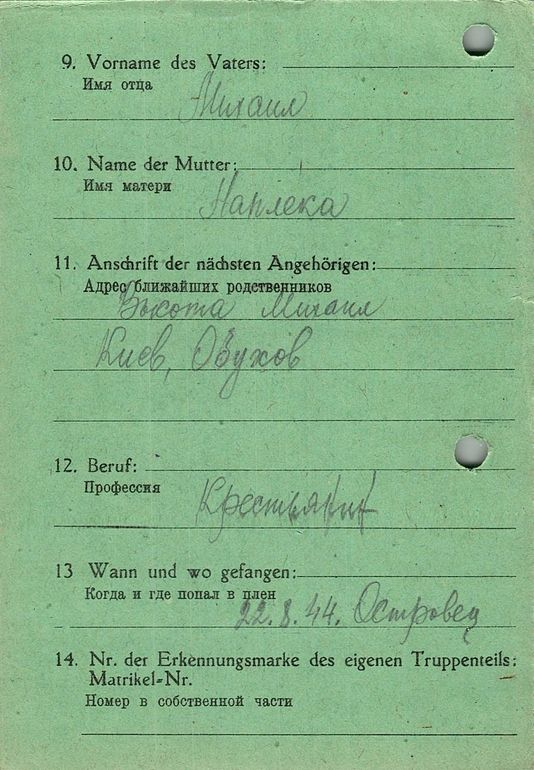 9. Vorname des Vaters:
Имя отца
Михаил
10. Name der Mutter:
Имя матери
Наплека
11. Anschrift der nächsten Angehörigen:
Адрес ближайших родственников
Высота Михаил
Киев, Обухов
12. Beruf:
Профессия
Крестьянин
13 Wann und wo gefangen:
Когда и где попал в плен
22.8.44. Островец
14. Nr. der Erkennungsmarke des eigenen Truppenteils:
Matrikel-Nr.
Номер в собственной части